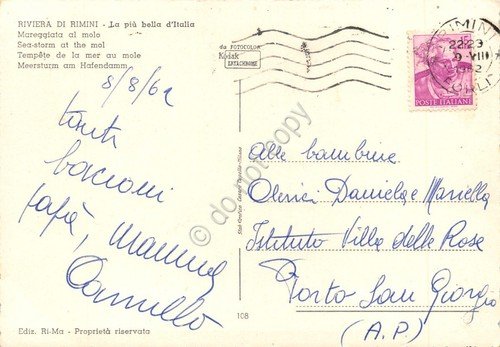 RIVIERA DI RIMINI - La più bella d'Italia
Mareggiata al molo
Sea-storm at the mol
Tempête de la mer au mole
Meersturm am Hafendamm
8/8/62
tanti
bacioni
papà, mamma
Camillo
da FOTOCOLOR
Kodak
EKTACHROME
RIMINI
22-23
9-VIII
1962
FORLI
POSTE ITALIANE
Alle bambine
Daniela e Mariella
Istituto Villa delle Rose
Porto San Giorgio
(A.P.)
do not copy
108
Ediz. Ri-Ma - Proprietà riservata